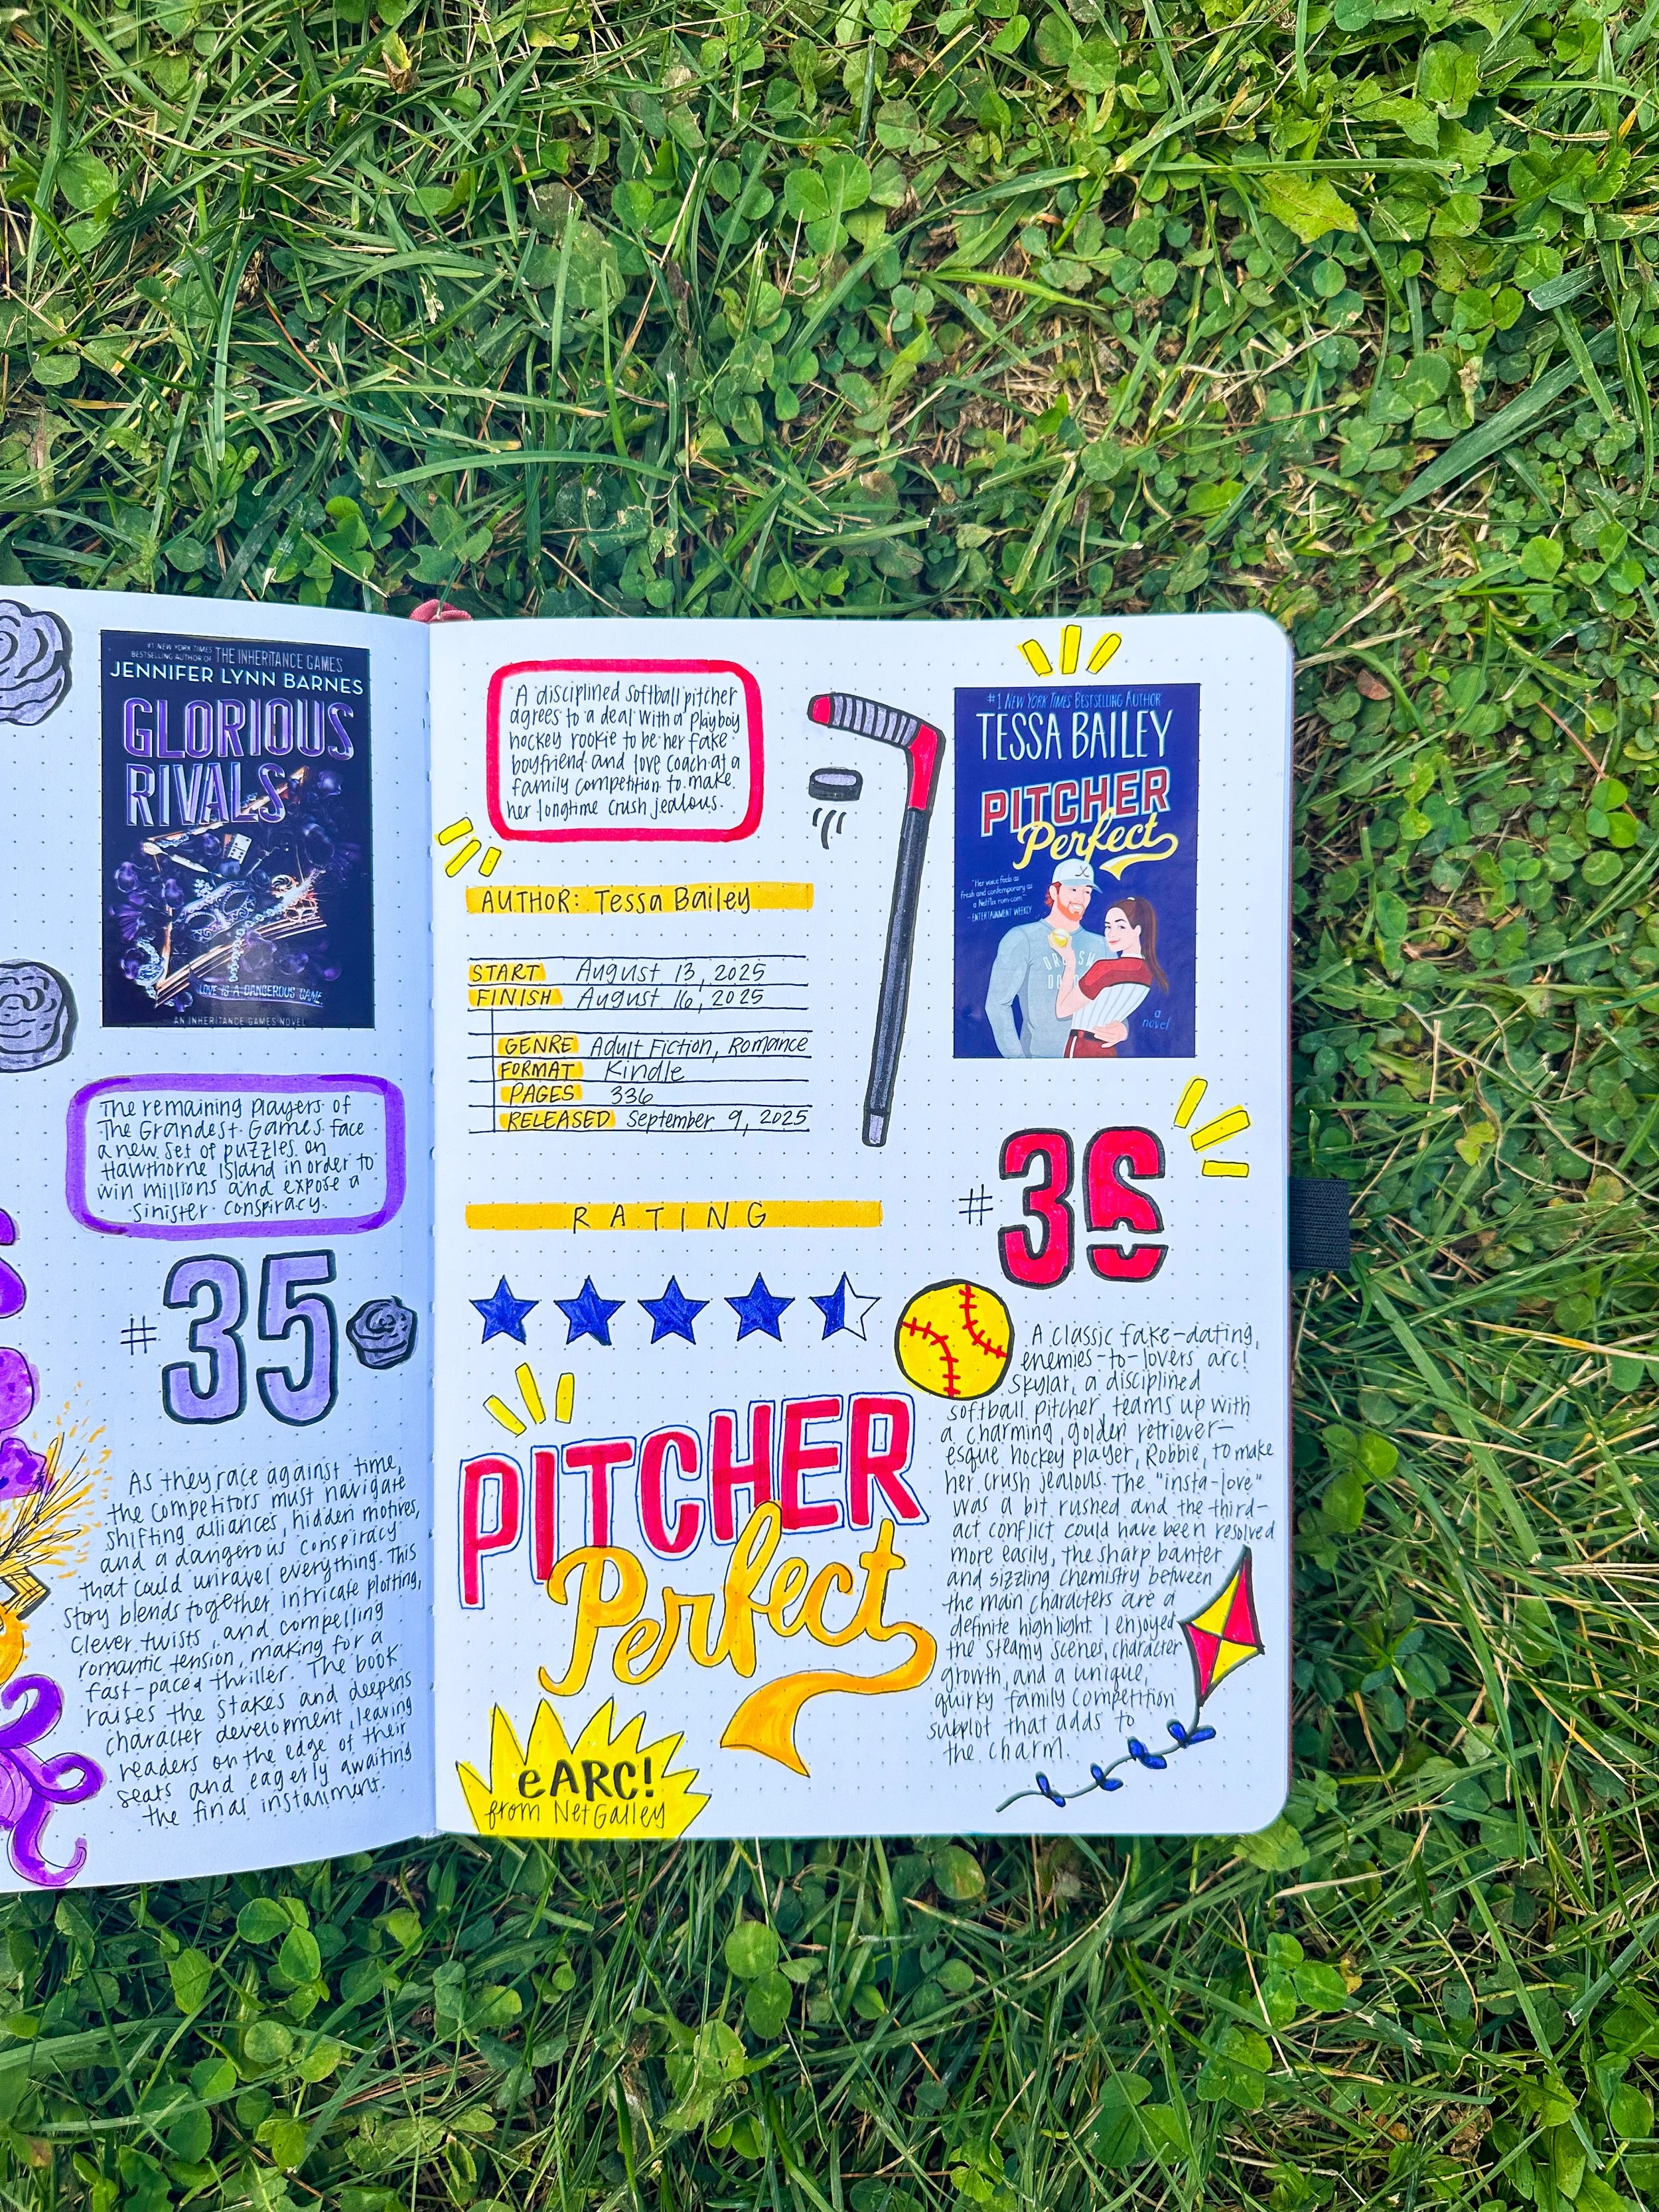 #1 NEW YORK TIMES
BESTSELLING AUTHOR OF THE INHERITANCE GAMES
JENNIFER LYNN BARNES
GLORIOUS
RIVALS
LOVE IS A DANGEROUS GAME
AN INHERITANCE GAMES NOVEL
The remaining players of
The Grandest Games face
a new set of puzzles on
Hawthorne Island in order to
win millions and expose a
sinister conspiracy.
#35
As they race against time,
the competitors must navigate
shifting alliances, hidden motives,
and a dangerous conspiracy
that could unravel everything. This
story blends together intricate plotting,
clever twists, and compelling
romantic tension, making for a
fast-paced thriller. The book
raises the stakes and deepens
character development, leaving
readers on the edge of their
seats and eagerly awaiting
the final installment.
A disciplined softball pitcher
agrees to a deal with a playboy
hockey rookie to be her fake
boyfriend and love coach at a
family competition to make
her longtime crush jealous.
AUTHOR: Tessa Bailey
START August 13, 2025
FINISH August 16, 2025
GENRE Adult Fiction, Romance
FORMAT Kindle
PAGES 336
RELEASED September 9, 2025
RATING
PITCHER
Perfect
eARC!
from NetGalley
#1 NEW YORK TIMES BESTSELLING AUTHOR
TESSA BAILEY
PITCHER
Perfect
"Her voice feels as
fresh and contemporary as
a Netflix rom-com."
- ENTERTAINMENT WEEKLY
a
novel
#36
A classic fake-dating,
enemies-to-lovers arc!
Skylar, a disciplined
softball pitcher, teams up with
a charming, golden retriever-
esque hockey player, Robbie, to make
her crush jealous. The "insta-love"
was a bit rushed and the third-
act conflict could have been resolved
more easily, the sharp banter
and sizzling chemistry between
the main characters are a
definite highlight. I enjoyed
the steamy scenes, character
growth, and a unique,
quirky family competition
subplot that adds to
the charm.